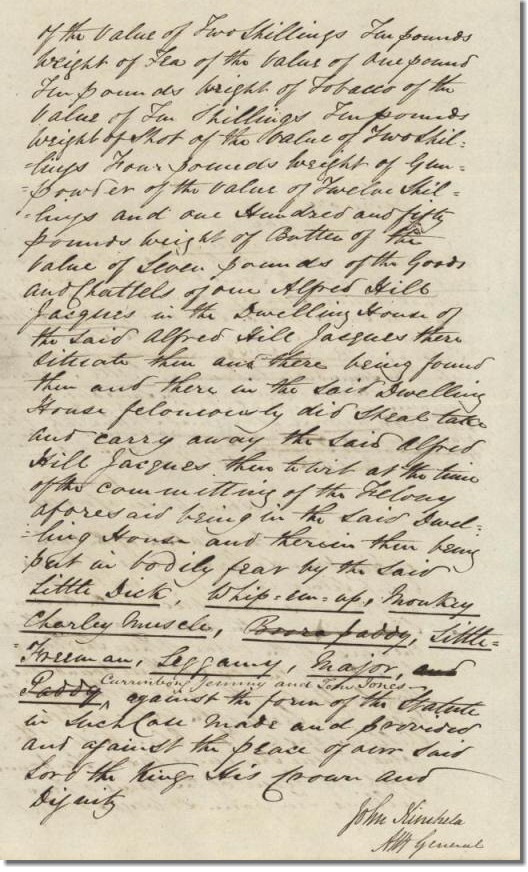 of the Value of Two Shillings Ten pounds
Weight of Tea of the value of one pound
Ten pounds weight of Tobacco of the
Value of Ten Shillings Ten pounds
Weight of Shot of the Value of Two Shil-
-lings Four pounds weight of Gun-
-powder of the value of Twelve Shil-
-lings and one Hundred and fifty
pounds weight of Butter of the
Value of Seven pounds of the Goods
and Chattels of one Alfred Hill
Jacques in the Dwelling House of
the said Alfred Hill Jacques there
situate then and there being found
then and there in the said Dwelling
House feloniously did steal take
and carry away the said Alfred
Hill Jacques then to wit at the time
of the committing of the Felony
aforesaid being in the said Dwel-
-ling House and therein then being
put in bodily fear by the said
Little Dick, Whip-em-up, Monkey
Charley Muscle, Boora paddy, Little-
-Freeman, Leggamy, Major, and
Currinbong Jemmy and Tom Jones-
Paddy, against the form of the Statute
in such Case made and provided
and against the peace of our said
Lord the King His Crown and
Dignity
John Kinchela
Att General